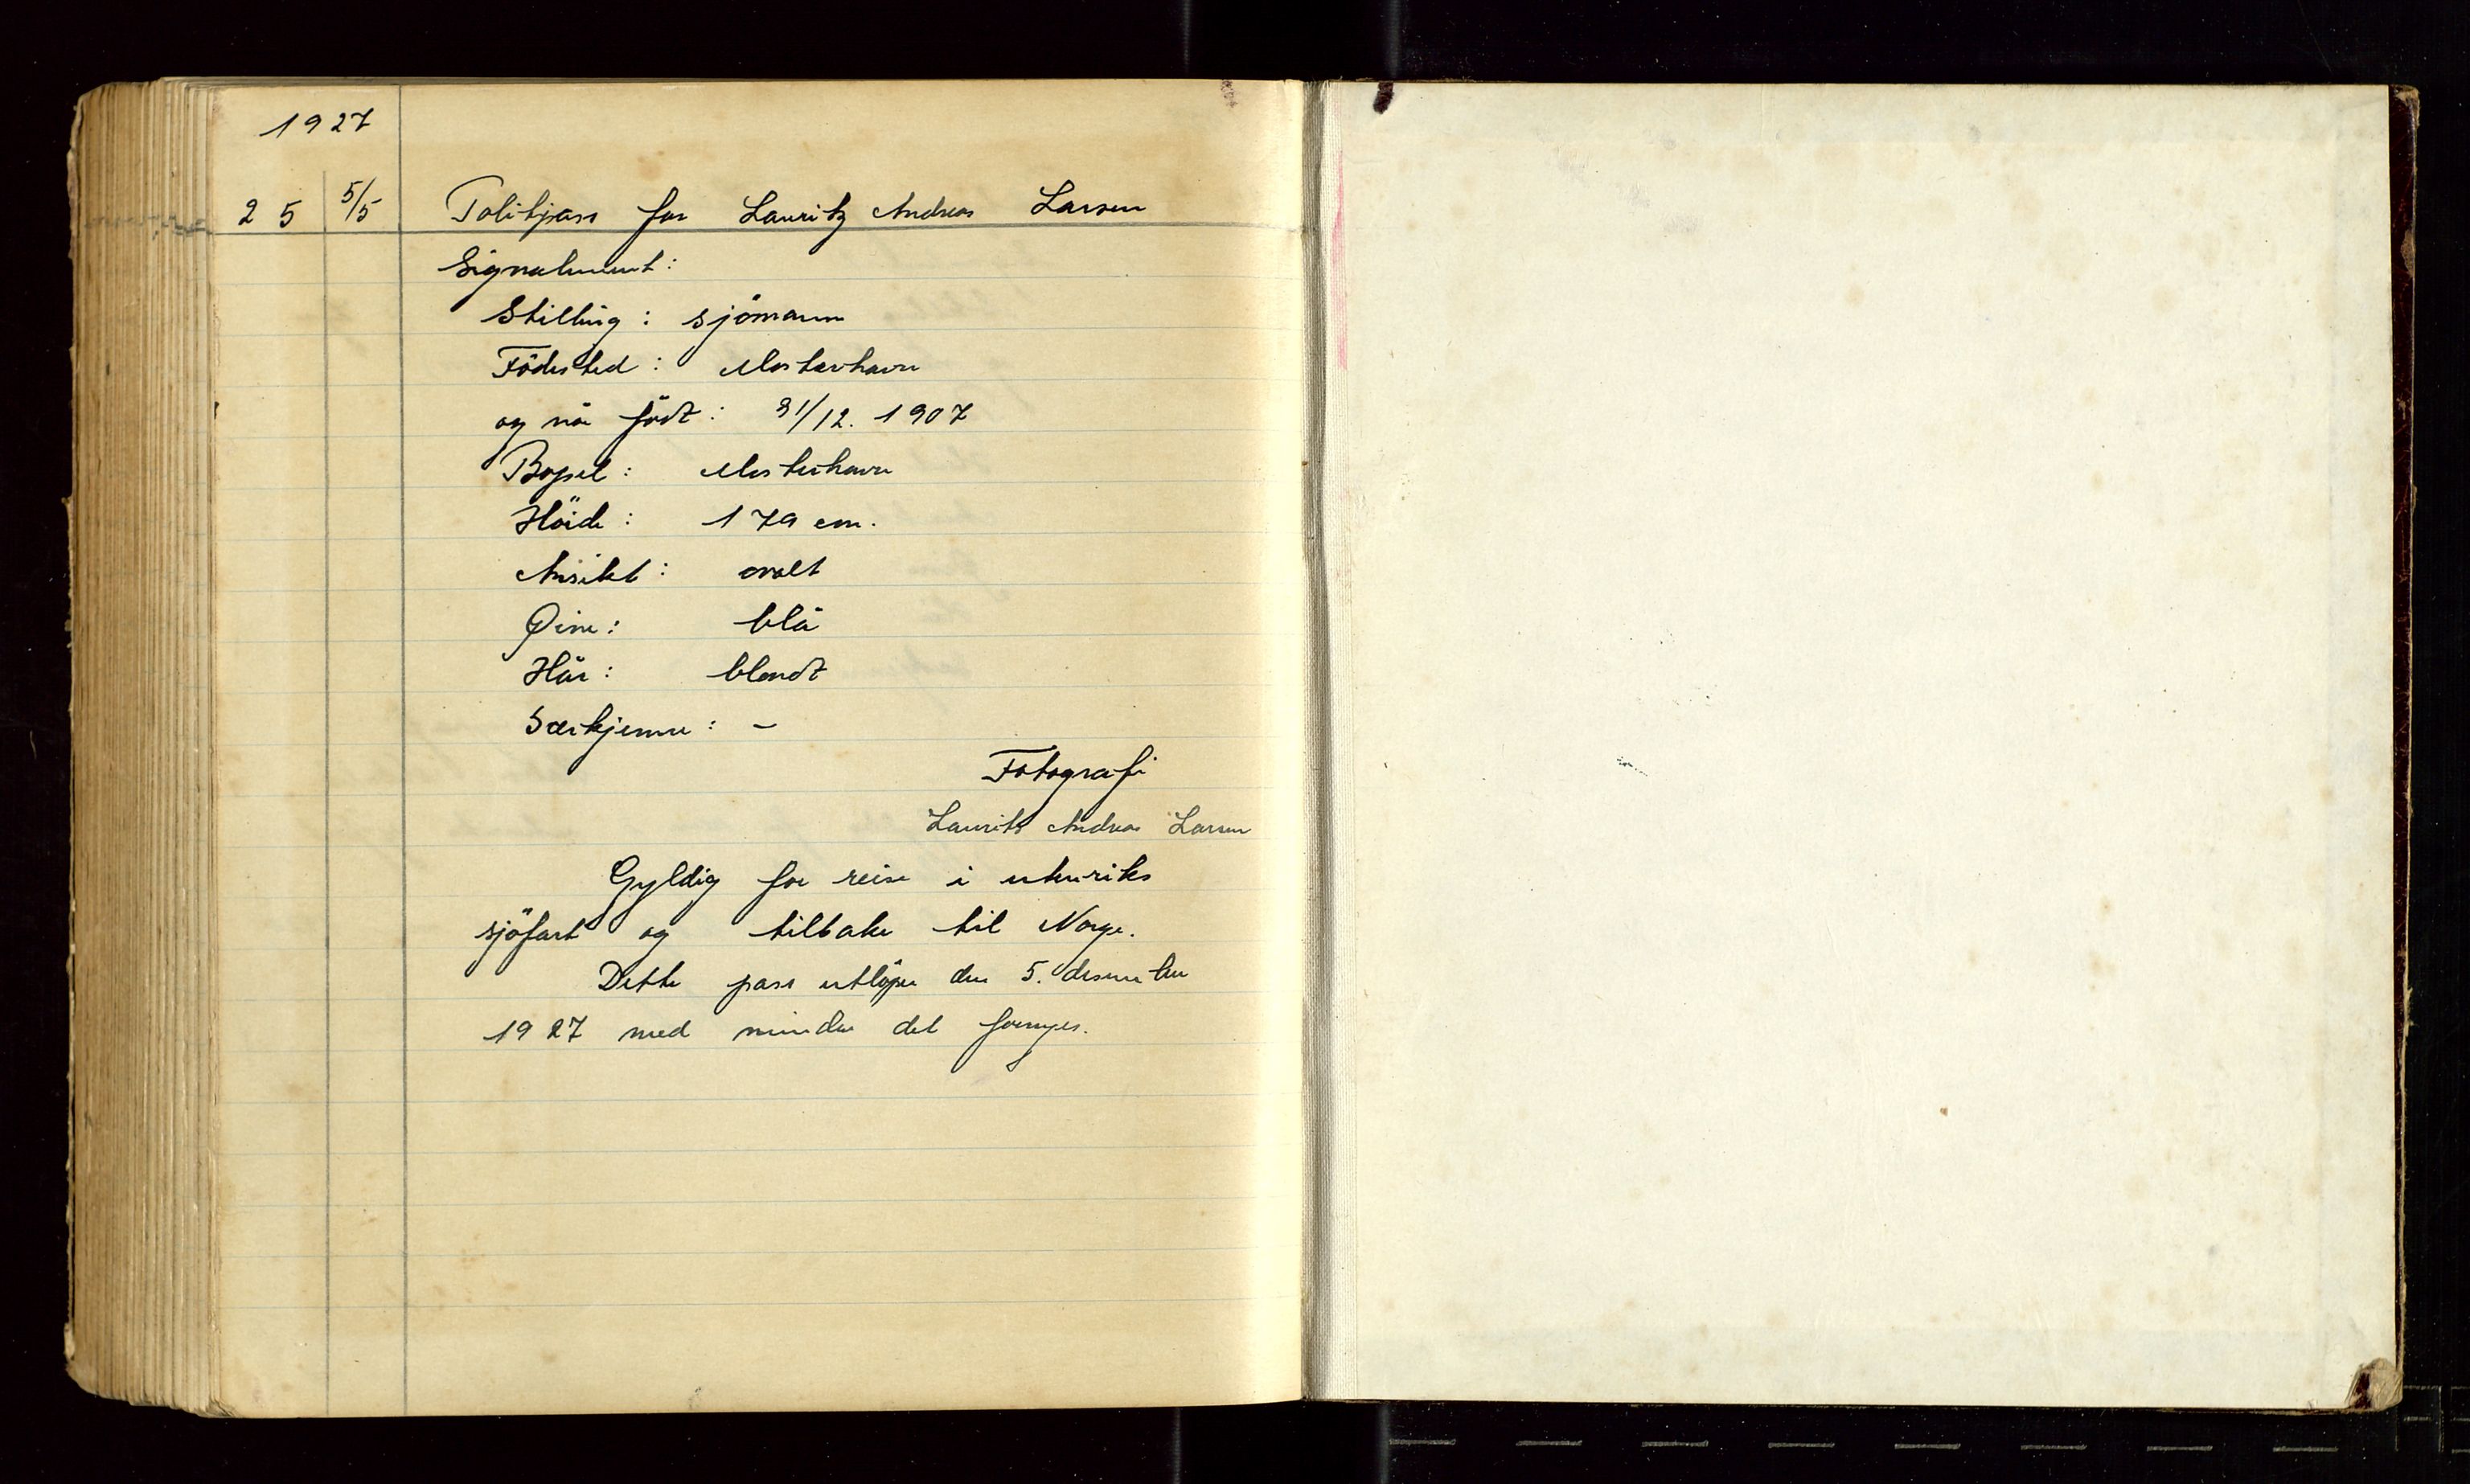 1927
25 5/5 Politipass for Lauritz Andreas Larsen
Signalement:
Stilling: sjömann
Födested: Mosterhavn
og når födt: 31/12. 1907
Bopel: Mosterhavn
Höide: 179 cm.
Ansikt: ovalt
Øine: blå
Hår: blondt
Særkjenne: –
Fotografi
Laurits Andreas Larsen
Gyldig for reise i utenriks
sjöfart og tilbake til Norge.
Dette pass utlöper den 5. desember
1927 med mindre det fornyes.